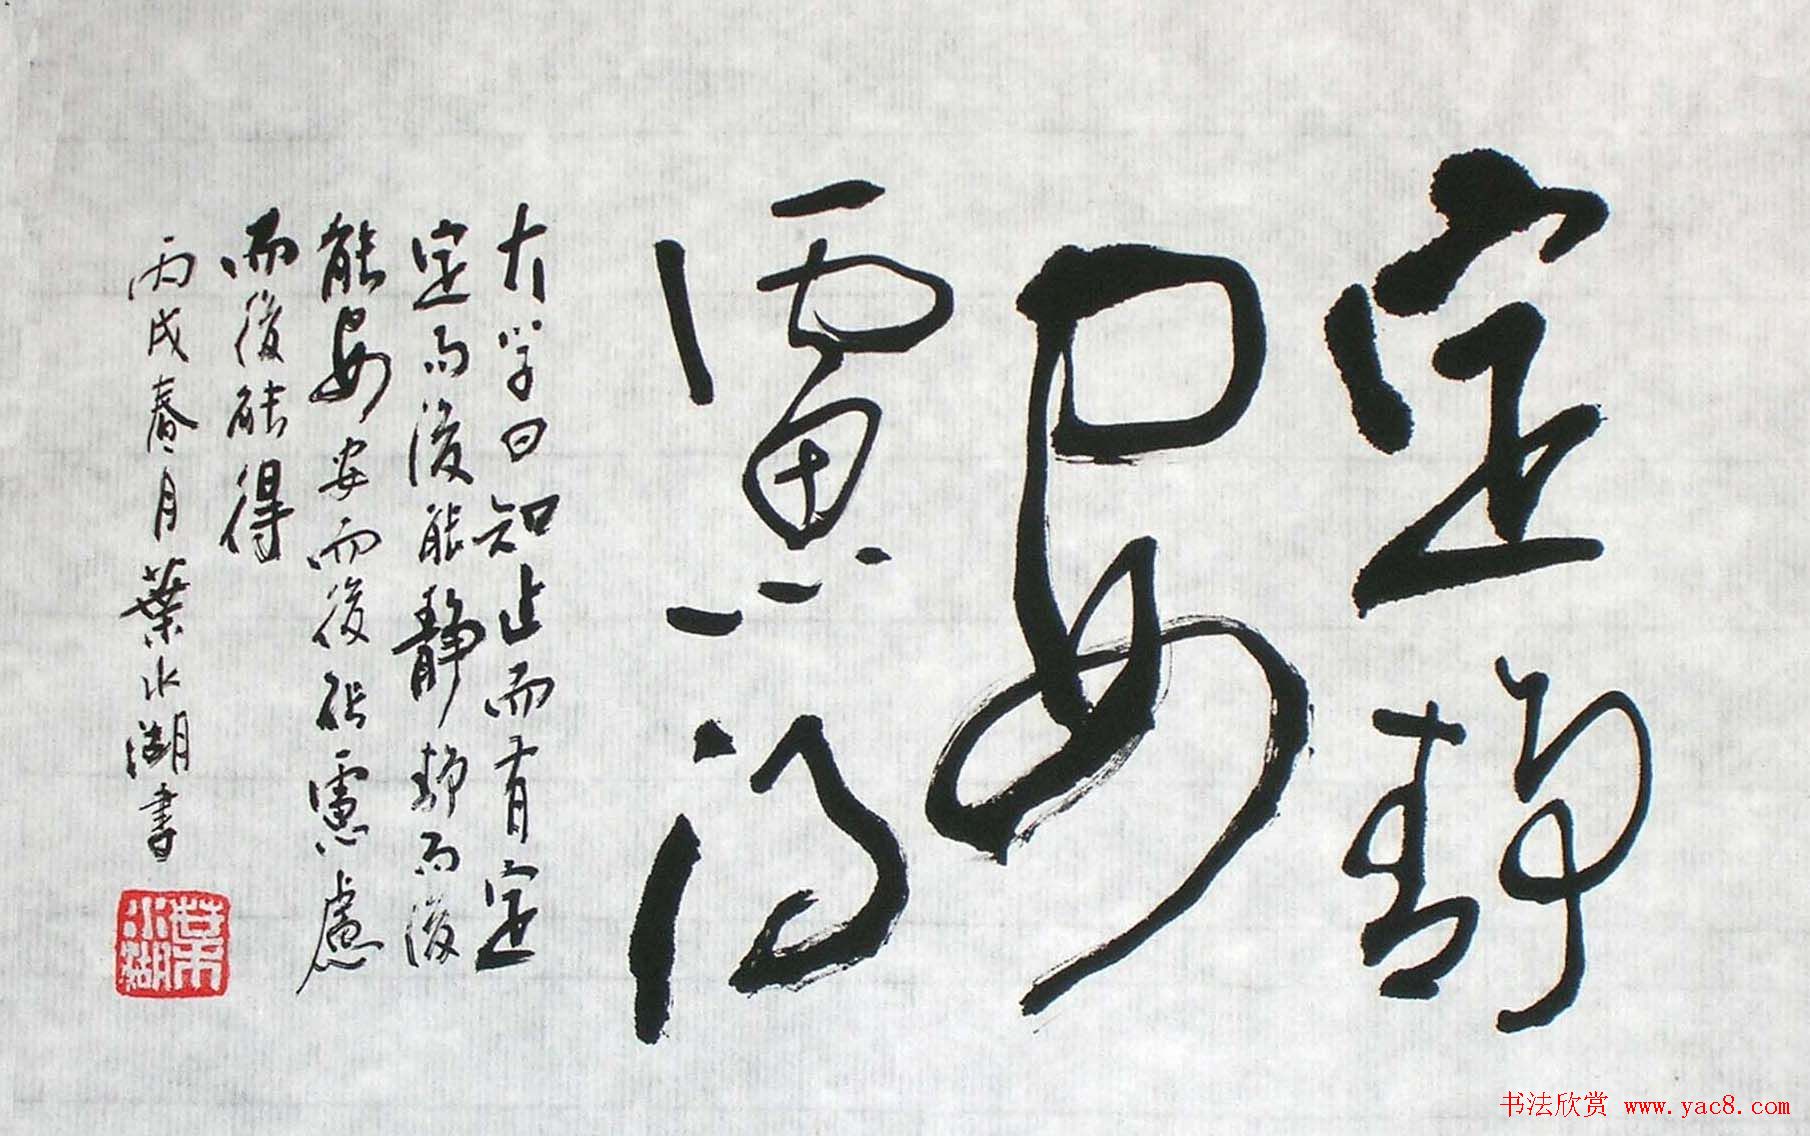 定静
安
慮得
大学曰知止而有定
定而後能静静而後
能安安而後能慮慮
而後能得
丙戌春月葉水湖書
葉水湖
书法欣赏 www.yac8.com